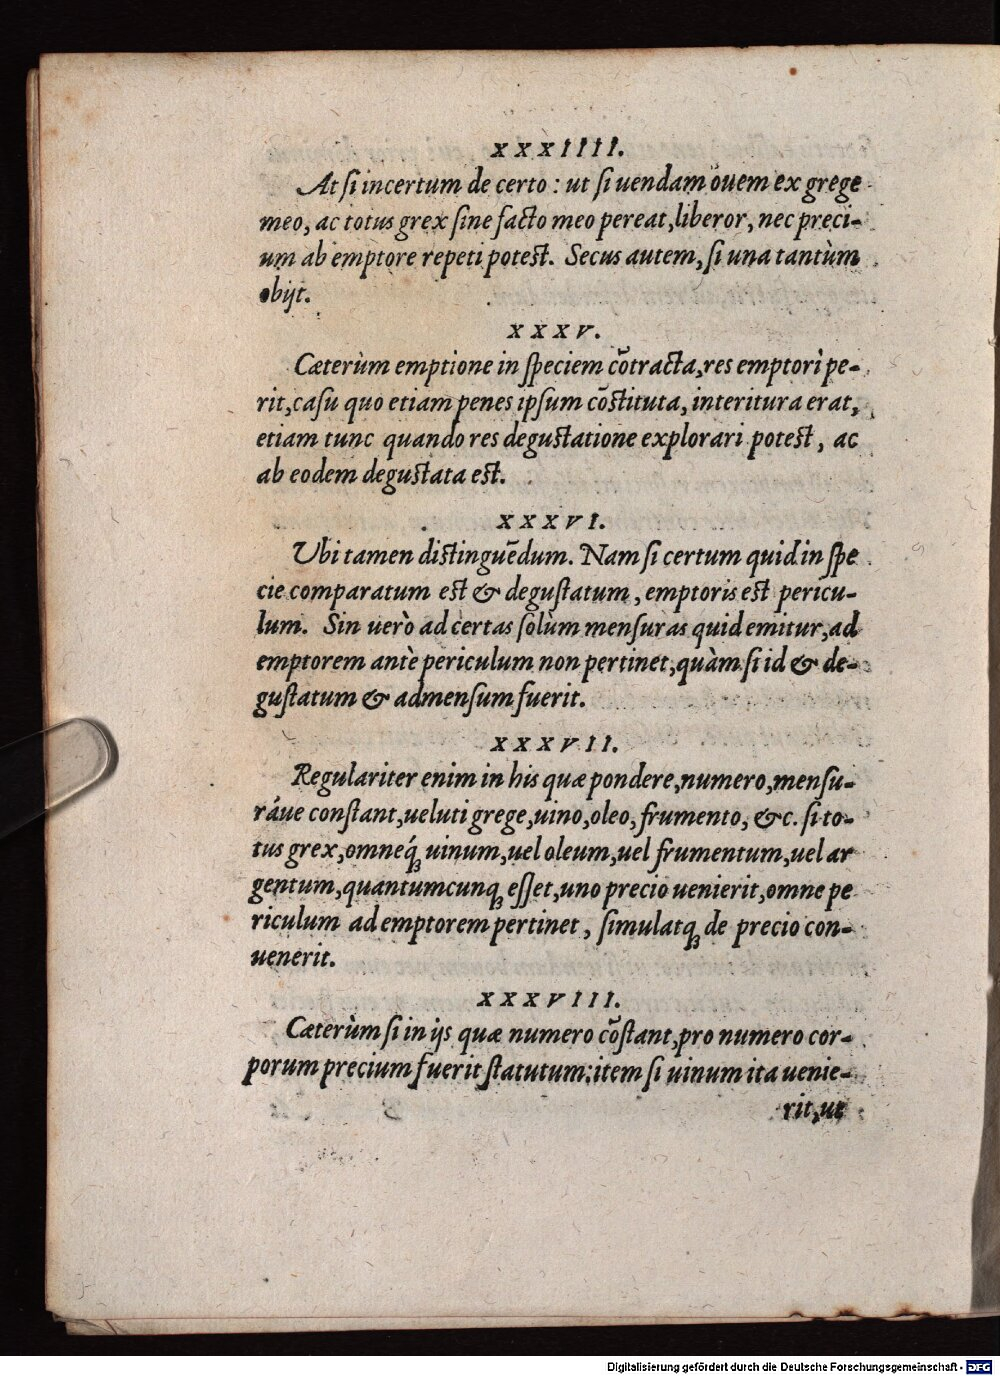 XXXIIII.
At si incertum de certo: ut si uendam ouem ex grege
meo, ac totus grex sine facto meo pereat, liberor, nec preci-
um ab emptore repeti potest. Secus autem, si una tantùm
obijt.
XXXV.
Cæterùm emptione in speciem cōtracta, res emptori pe-
rit, casu quo etiam penes ipsum cōstituta, interitura erat,
etiam tunc quando res degustatione explorari potest, ac
ab eodem degustata est.
XXXVI.
Ubi tamen distinguēdum. Nam si certum quid in spe
cie comparatum est & degustatum, emptoris est pericu-
lum. Sin uerò ad certas solùm mensuras quid emitur, ad
emptorem antè periculum non pertinet, quàm si id & de-
gustatum & admensum fuerit.
XXXVII.
Regulariter enim in his quæ pondere, numero, mensu-
ráue constant, ueluti grege, uino, oleo, frumento, &c. si to-
tus grex, omneq́ꝫ uinum, uel oleum, uel frumentum, uel ar
gentum, quantumcunqꝫ esset, uno precio uenierit, omne pe
riculum ad emptorem pertinet, simulatqꝫ de precio con-
uenerit.
XXXVIII.
Cæterùm si in ijs quæ numero cōstant, pro numero cor-
porum precium fuerit statutum: item si uinum ita uenie-
rit, ut
Digitalisierung gefördert durch die Deutsche Forschungsgemeinschaft - DFG